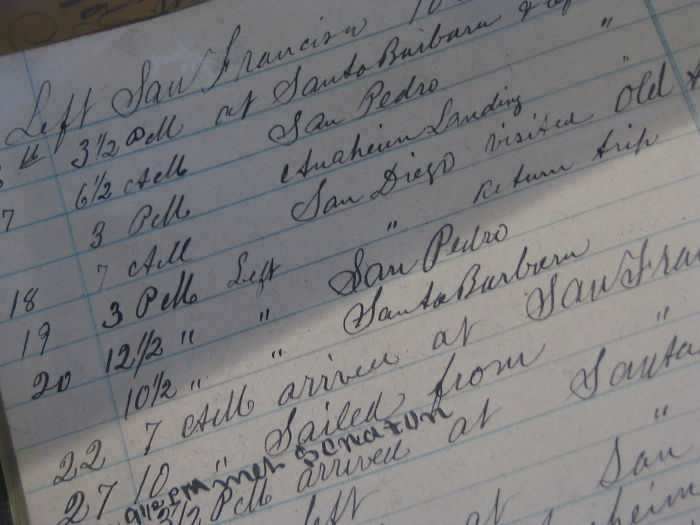 Left San Francisco 10
th 3 1/2 PM at Santa Barbara &
6 1/2 AM San Pedro "
7 3 PM Anaheim Landing "
7 AM San Diego visited Old
18 3 PM Left " Return trip
19 12 1/2 " " San Pedro
20 10 1/2 " " Santa Barbara
22 7 AM arrived at San Fran
27 10 " Sailed from "
9 1/2 PM met Senator
3 1/2 PM arrived at Santa
left "
at San